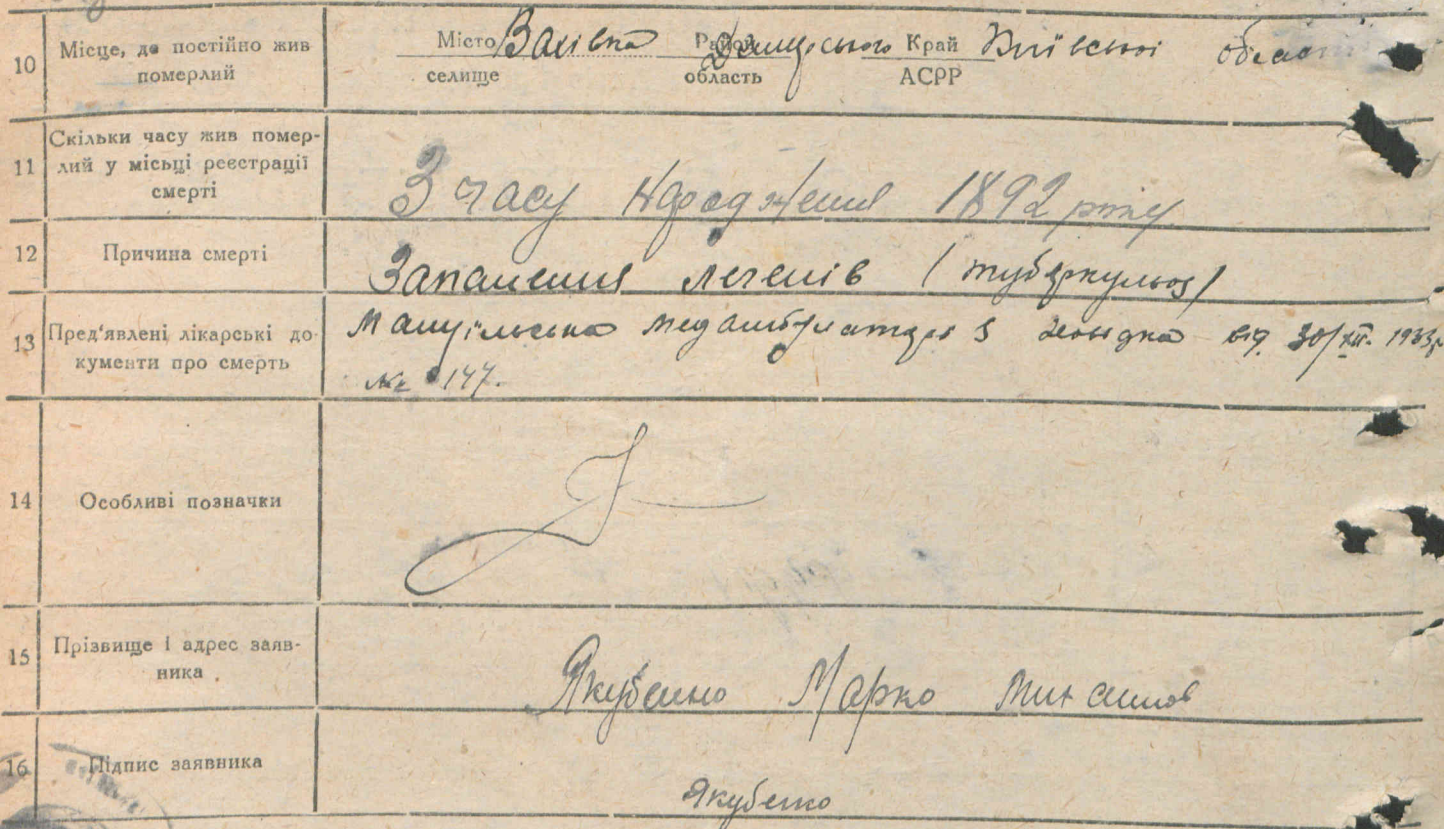 10 Місце, де постійно жив померлий
Місто Вахівка Район Димерського Край Київської області
селище область АСРР
11 Скільки часу жив помер-
лий у місьці реєстрації
смерті
З часу народження 1892 року
12 Причина смерті
Запалення легенів (туберкульоз)
13 Пред'явлені лікарські до-
кументи про смерть
медамбулаторія довідка від 30/XII. 1933р
№ 147.
14 Особливі позначки
15 Прізвище і адрес заяв-
ника
Якубенко Марко
16 Підпис заявника
Якубенко